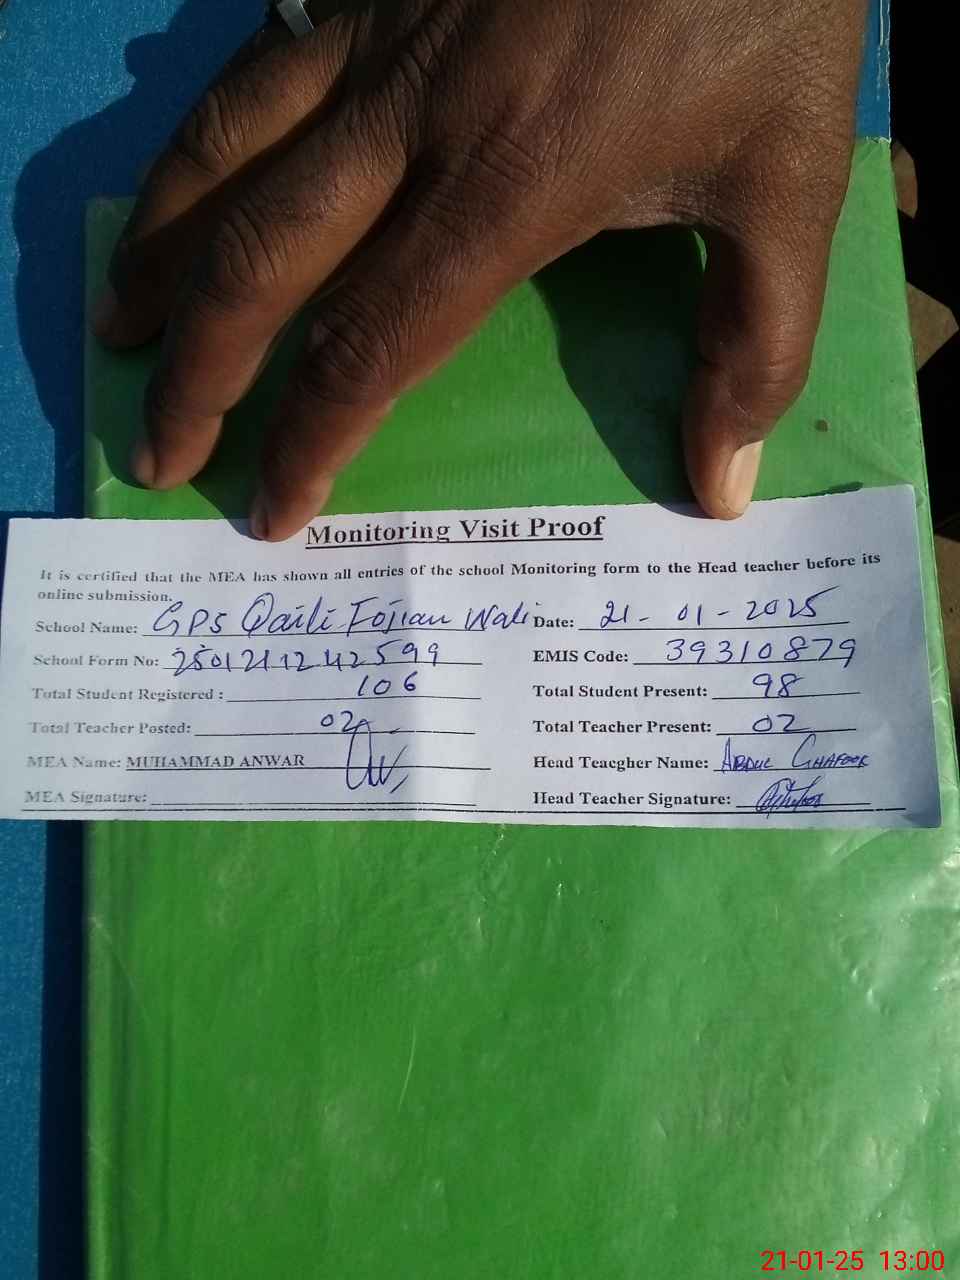 Monitoring Visit Proof
It is certified that the MEA has shown all entries of the school Monitoring form to the Head teacher before its
online submission.
School Name: GPS Qaili Fojian Wali Date: 21-01-2025
School Form No: 250121124 2599 EMIS Code: 39310879
Total Student Registered : 106 Total Student Present: 98
Total Teacher Posted: 02 Total Teacher Present: 02
MEA Name: MUHAMMAD ANWAR Head Teacgher Name: ABDUL GHAFOOR
MEA Signature: Head Teacher Signature:
21-01-25 13:00